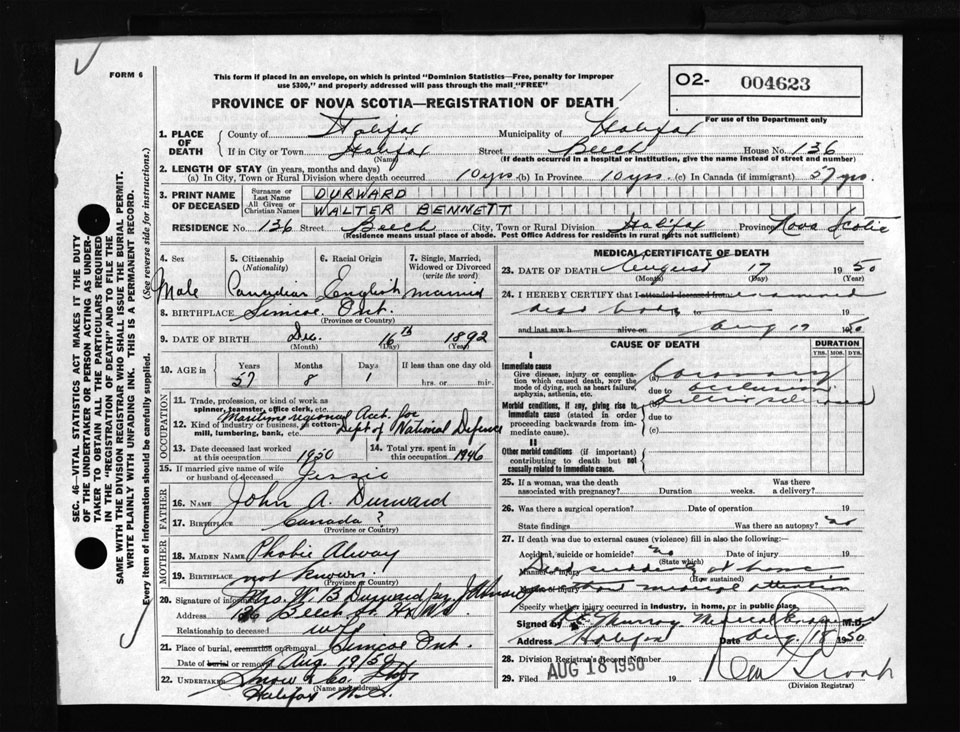 FORM 6
This form if placed in an envelope, on which is printed "Dominion Statistics—Free, penalty for improper
use $300," and properly addressed will pass through the mail "FREE"
O2- 004623
For use of the Department only
PROVINCE OF NOVA SCOTIA—REGISTRATION OF DEATH
1. PLACE OF DEATH
County of Halifax Municipality of Halifax
If in City or Town Halifax Street Beech House No. 136
(Name) (If death occurred in a hospital or institution, give the name instead of street and number)
2. LENGTH OF STAY (in years, months and days)
(a) In City, Town or Rural Division where death occurred 10 yrs. (b) In Province 10 yrs. (c) In Canada (if immigrant) 57 yrs.
3. PRINT NAME OF DECEASED
Surname or Last Name DURWARD
All Given or Christian Names WALTER BENNETT
RESIDENCE No. 136 Street Beech City, Town or Rural Division Halifax Province Nova Scotia
(Residence means usual place of abode. Post Office Address for residents in rural parts not sufficient)
SEC. 46—VITAL STATISTICS ACT MAKES IT THE DUTY
OF THE UNDERTAKER OR PERSON ACTING AS UNDER-
TAKER TO OBTAIN ALL THE PARTICULARS REQUIRED
IN THE "REGISTRATION OF DEATH" AND TO FILE THE
SAME WITH THE DIVISION REGISTRAR WHO SHALL ISSUE THE BURIAL PERMIT.
WRITE PLAINLY WITH UNFADING INK. THIS IS A PERMANENT RECORD.
Every item of information should be carefully supplied. (See reverse side for instructions.)
4. Sex
Male
5. Citizenship
(Nationality)
Canadian
6. Racial Origin
English
7. Single, Married, Widowed or Divorced
(write the word)
married
8. BIRTHPLACE Simcoe Ont.
(Province or Country)
9. DATE OF BIRTH Dec. 16th 1892
(Month) (Day) (Year)
10. AGE in Years Months Days If less than one day old
57 8 1 hrs. or min.
OCCUPATION
11. Trade, profession, or kind of work as
spinner, teamster, office clerk, etc.
Maritime regional Acct. for
12. Kind of industry or business, as cotton-
mill, lumbering, bank, etc. Dept of National Defence
13. Date deceased last worked
at this occupation 1950
14. Total yrs. spent in
this occupation 1946
15. If married give name of wife
or husband of deceased Jessie
FATHER
16. NAME John A. Durward
17. BIRTHPLACE Canada?
(Province or Country)
MOTHER
18. MAIDEN NAME Phobie Alway
19. BIRTHPLACE not known
(Province or Country)
20. Signature of informant Mrs. W. B. Durward per
Address 136 Beech St. Hx N.S.
Relationship to deceased wife
21. Place of burial, cremation or removal Simcoe Ont.
Date of burial or removal Aug. 19/50
22. UNDERTAKER Snow & Co. Ltd
(Name and address)
Halifax N.S.
MEDICAL CERTIFICATE OF DEATH
23. DATE OF DEATH August 17 1950
(Month) (Day) (Year)
24. I HEREBY CERTIFY that I attended deceased from examined
dead body to
and last saw h alive on Aug 17 1950
CAUSE OF DEATH
DURATION
YRS. MOS. DYS.
I
Immediate cause
Give disease, injury or complica-
tion which caused death, NOT the
mode of dying, such as heart failure,
asphyxia, asthenia, etc.
(a) Coronary
due to occlusion
Morbid conditions, if any, giving rise to
immediate cause (stated in order
proceeding backwards from im-
mediate cause).
(b)
due to
(c)
II
Other morbid conditions (if important)
contributing to death but not
causally related to immediate cause.
25. If a woman, was the death
associated with pregnancy? Duration weeks. Was there
a delivery?
26. Was there a surgical operation? Date of operation 19
State findings Was there an autopsy? no
27. If death was due to external causes (violence) fill in also the following:
Accident, suicide or homicide? no Date of injury 19
(State which)
Manner of injury Died suddenly at home
(How sustained)
Nature of injury medical attention
Specify whether injury occurred in industry, in home, or in public place.
Signed by Murray Medical Examiner M.D.
Address Halifax Date Aug. 18 1950
28. Division Registrar's Record Number
29. Filed AUG 18 1950 19
(Division Registrar)